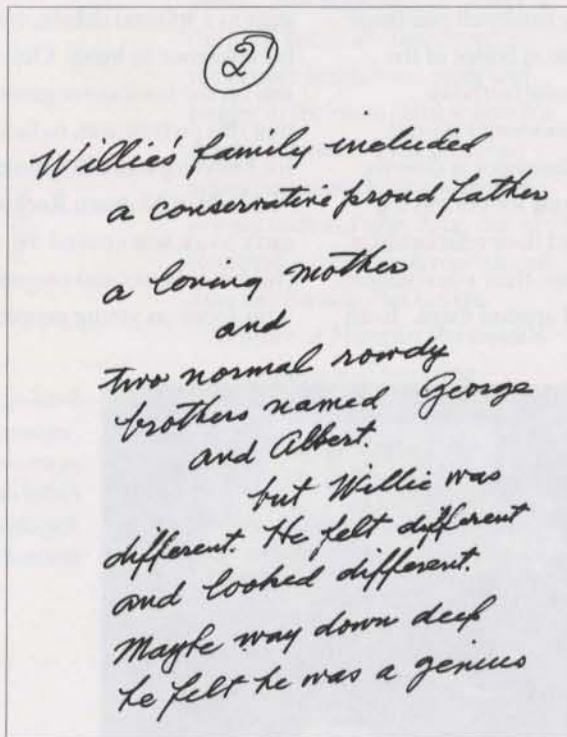 2
Willie's family included
a conservative proud father
a loving mother
and
two normal rowdy
brothers named George
and Albert.
but Willie was
different. He felt different
and looked different.
Maybe way down deep
he felt he was a genius